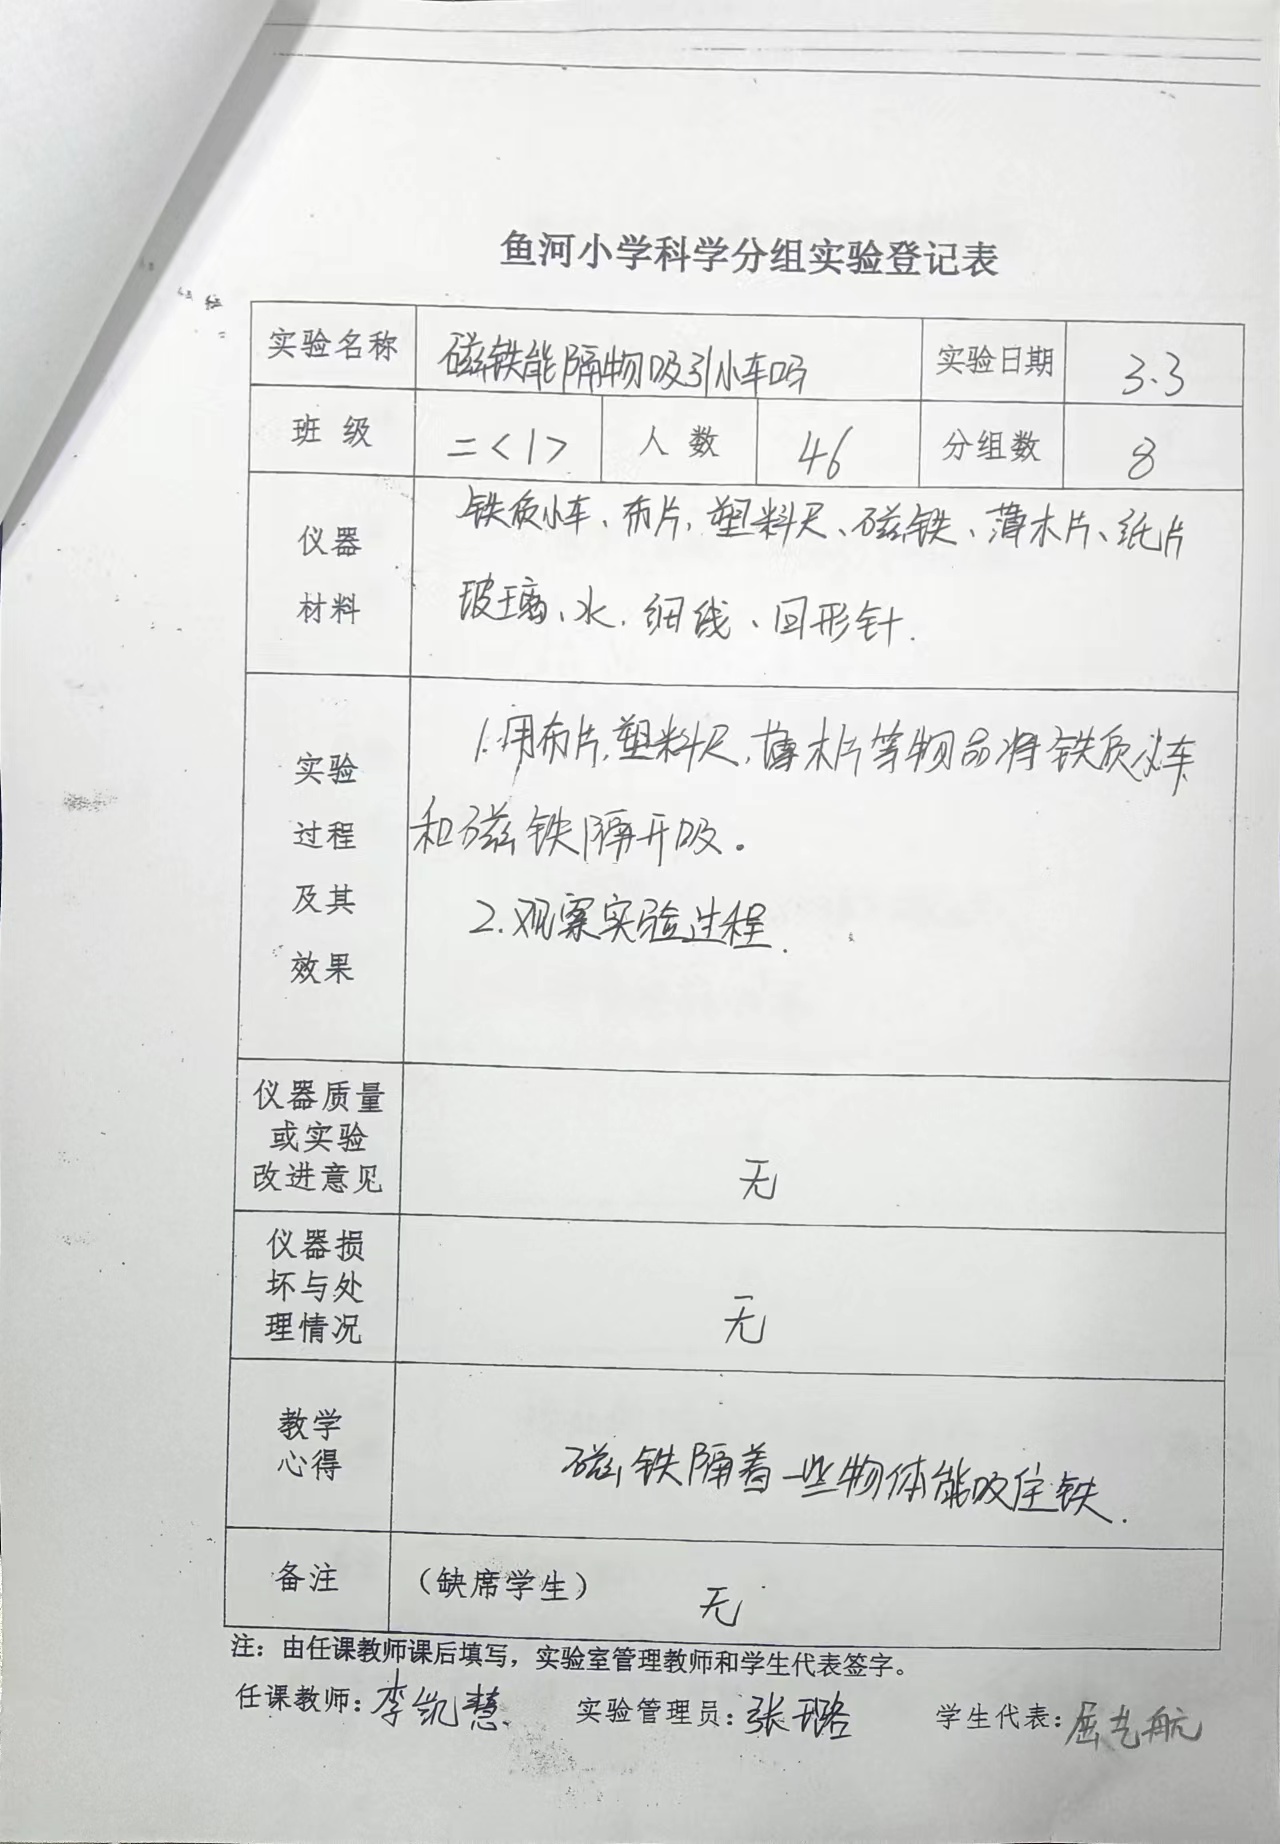 鱼河小学科学分组实验登记表
实验名称 磁铁能隔物吸引小车吗 实验日期 3.3
班级 二<1> 人数 46 分组数 8
仪器
材料
铁质小车、布片,塑料尺、磁铁、薄木片、纸片
玻璃、水.细线、回形针.
实验
过程
及其
效果
1.用布片,塑料尺,薄木片等物品将铁质小车
和磁铁隔开吸。
2.观察实验过程.
仪器质量
或实验
改进意见
无
仪器损
坏与处
理情况
无
教学
心得
磁铁隔着一些物体能吸住铁.
备注 (缺席学生) 无
注:由任课教师课后填写,实验室管理教师和学生代表签字。
任课教师:李凯慧 实验管理员:张璐 学生代表:屈艺航